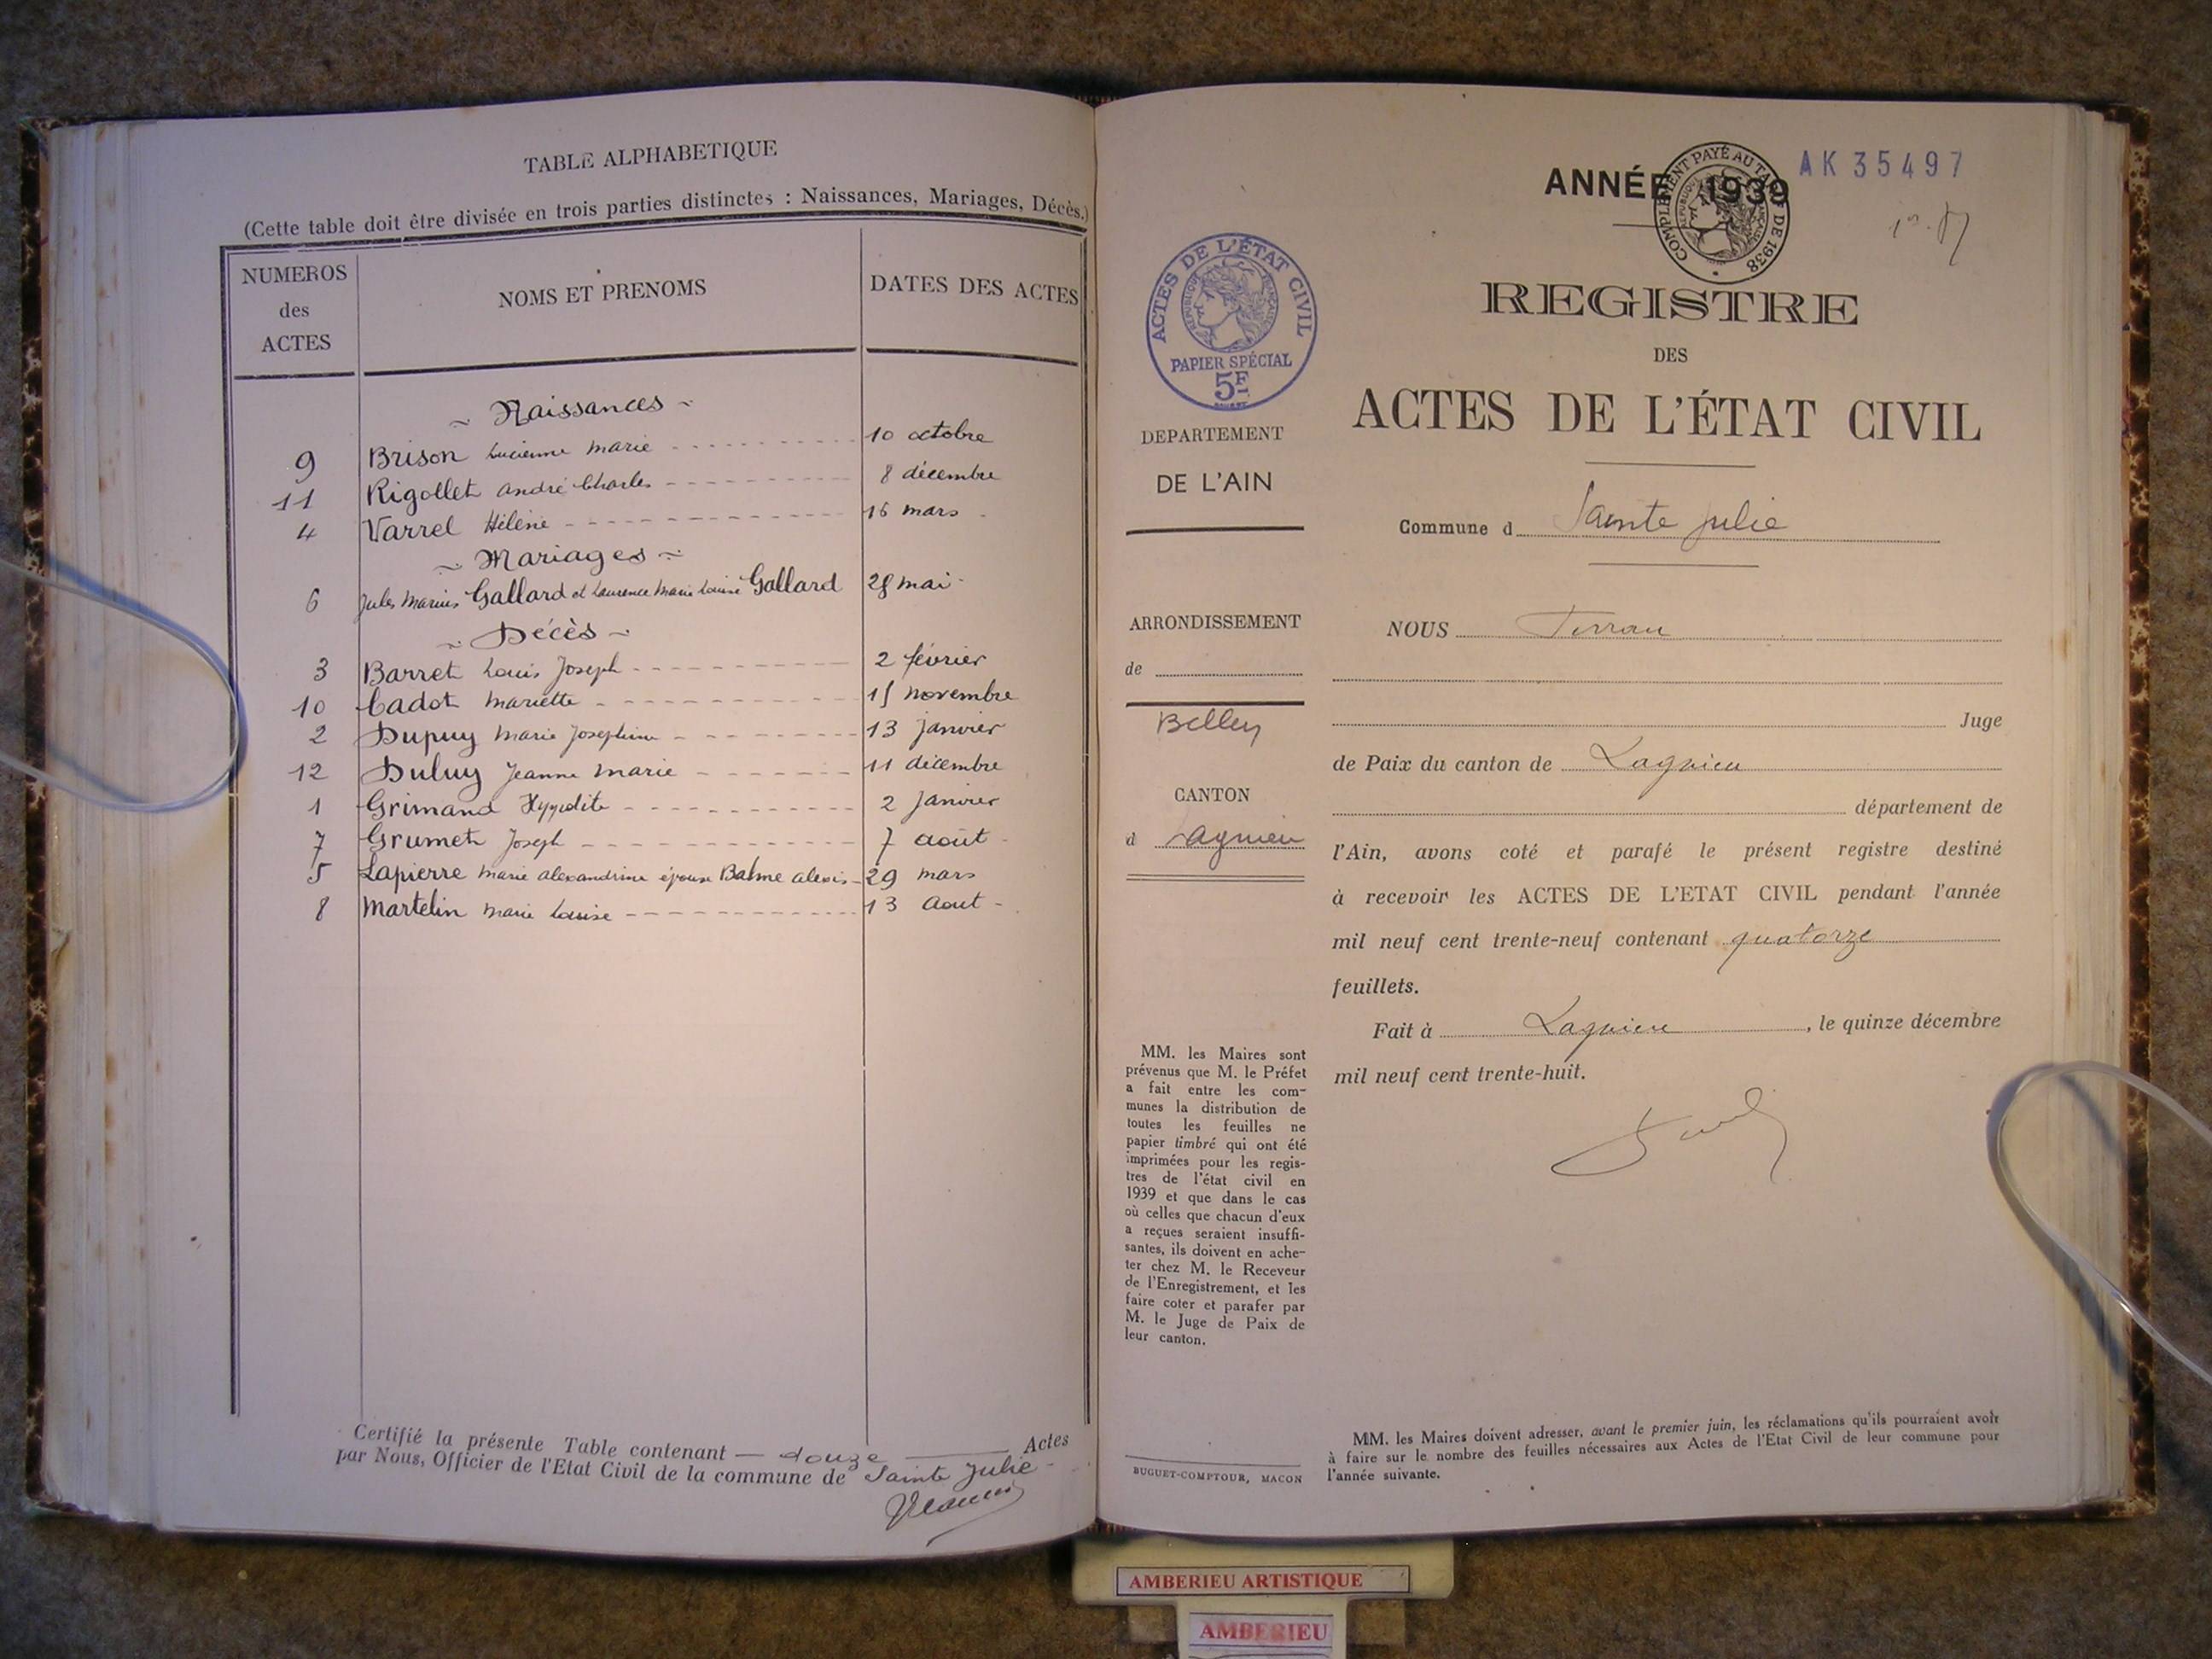 TABLE ALPHABETIQUE
(Cette table doit être divisée en trois parties distinctes : Naissances, Mariages, Décès.)
NUMEROS des ACTES
NOMS ET PRENOMS
DATES DES ACTES
~ Naissances ~
9 Brison Lucienne Marie 10 octobre
11 Rigollet André Charles 8 décembre
4 Varrel Hélène 16 mars
~ Mariages ~
6 Jules Marius Gallard et Laurence Marie Louise Gallard 28 mai
~ Décès ~
3 Barret Louis Joseph 2 février
10 Cadot Mariette 15 novembre
2 Dupuy Marie Josephine 13 janvier
12 Duluy Jeanne Marie 11 décembre
1 Grimand Hyppolite 2 janvier
7 Grumet Joseph 7 août
5 Lapierre Marie Alexandrine épouse Balme Alexis 29 mars
8 Martelin Marie Louise 13 aout
Certifié la présente Table contenant — douze — Actes
par Nous, Officier de l'Etat Civil de la commune de Sainte Julie
ACTES DE L'ÉTAT CIVIL
RÉPUBLIQUE FRANÇAISE
PAPIER SPÉCIAL
5F
DEPARTEMENT
DE L'AIN
ARRONDISSEMENT
de
Belley
CANTON
d Lagnieu
MM. les Maires sont
prévenus que M. le Préfet
a fait entre les com-
munes la distribution de
toutes les feuilles ne
papier timbré qui ont été
imprimées pour les regis-
tres de l'état civil en
1939 et que dans le cas
où celles que chacun d'eux
a reçues seraient insuffi-
santes, ils doivent en ache-
ter chez M. le Receveur
de l'Enregistrement, et les
faire coter et parafer par
M. le Juge de Paix de
leur canton.
BUGUET-COMPTOUR, MACON
ANNÉE 1939
COMPLEMENT PAYÉ AU TARIF DE 1938
AK 35497
REGISTRE
DES
ACTES DE L'ÉTAT CIVIL
Commune d Sainte Julie
NOUS
Juge
de Paix du canton de Lagnieu
département de
l'Ain, avons coté et parafé le présent registre destiné
à recevoir les ACTES DE L'ETAT CIVIL pendant l'année
mil neuf cent trente-neuf contenant quatorze
feuillets.
Fait à Lagnieu, le quinze décembre
mil neuf cent trente-huit.
MM. les Maires doivent adresser, avant le premier juin, les réclamations qu'ils pourraient avoir
à faire sur le nombre des feuilles nécessaires aux Actes de l'Etat Civil de leur commune pour
l'année suivante.
AMBERIEU ARTISTIQUE
AMBERIEU